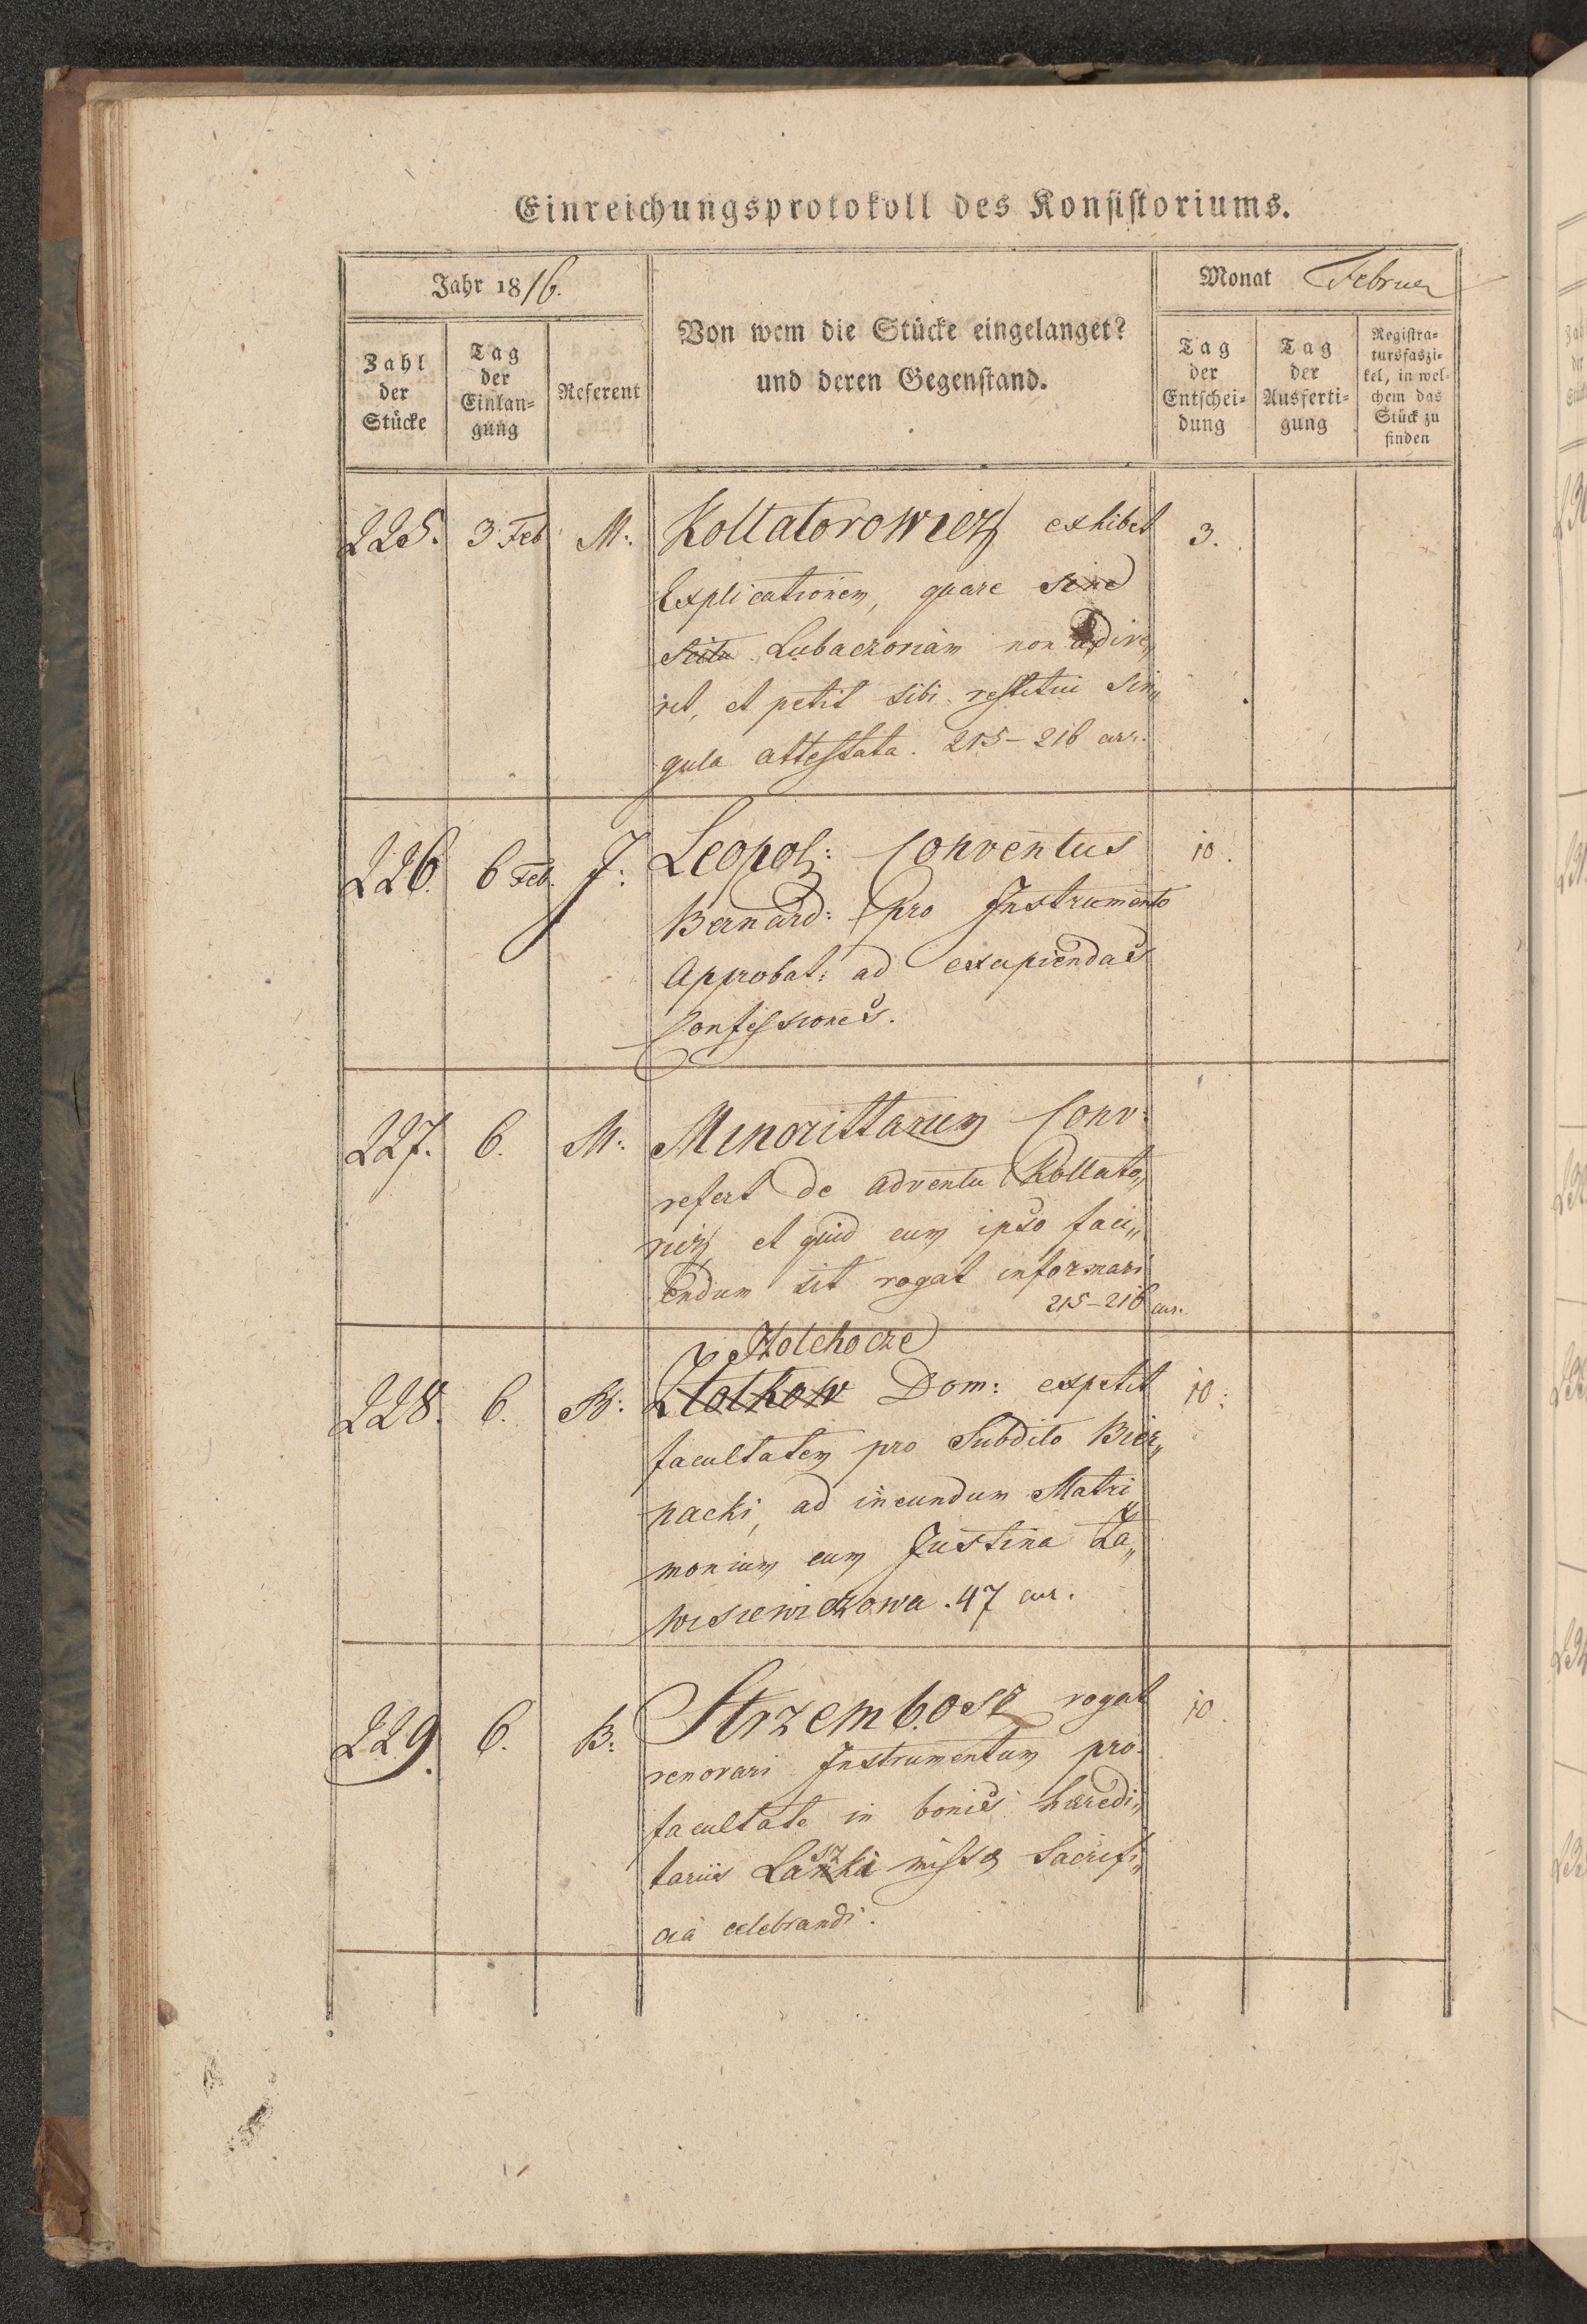 Einreichungsprotokoll des Konsistoriums.
Jahr 1816.
Monat Februer
Zahl der Stücke
Tag der Einlan= gung
Referent
Von wem die Stücke eingelanget?
und deren Gegenstand.
Tag der Entschei= dung
Tag der Ausferti= gung
Registra= tursfaszi= kel, in wel= chem das Stück zu finden
225. 3 Feb M: Kollatorowicz exhibet 3.
Explicationem, quare sine
scitu Lubaczoviam non adive„
rit, et petit sibi restitui sin„
gula attestata. 215–216 curr.
226. 6 Feb. J: Leopol: Conventus 10.
Bernard: pro Instrumento
Approbat: ad excipiendas
Confessiones.
227. 6. M: Minorittarum Conv:
refert de adventu Kollato„
ricz et quid cum ipso faci„
endum sit rogat informari
215–216 cur.
Zolchocze
228. 6. B: Zlotkow Dom: expetit 10:
facultatem pro Subdito Bier„
nacki, ad ineundum Matri
monium cum Justina Za„
wisiewiczowa. 47 cur.
229. 6. B: Strzembosz rogat 10.
renovari Instrumentum pro
facultate in bonis haeredi„
tariis Laszki missae Sacrifi„
cia celebrandi.